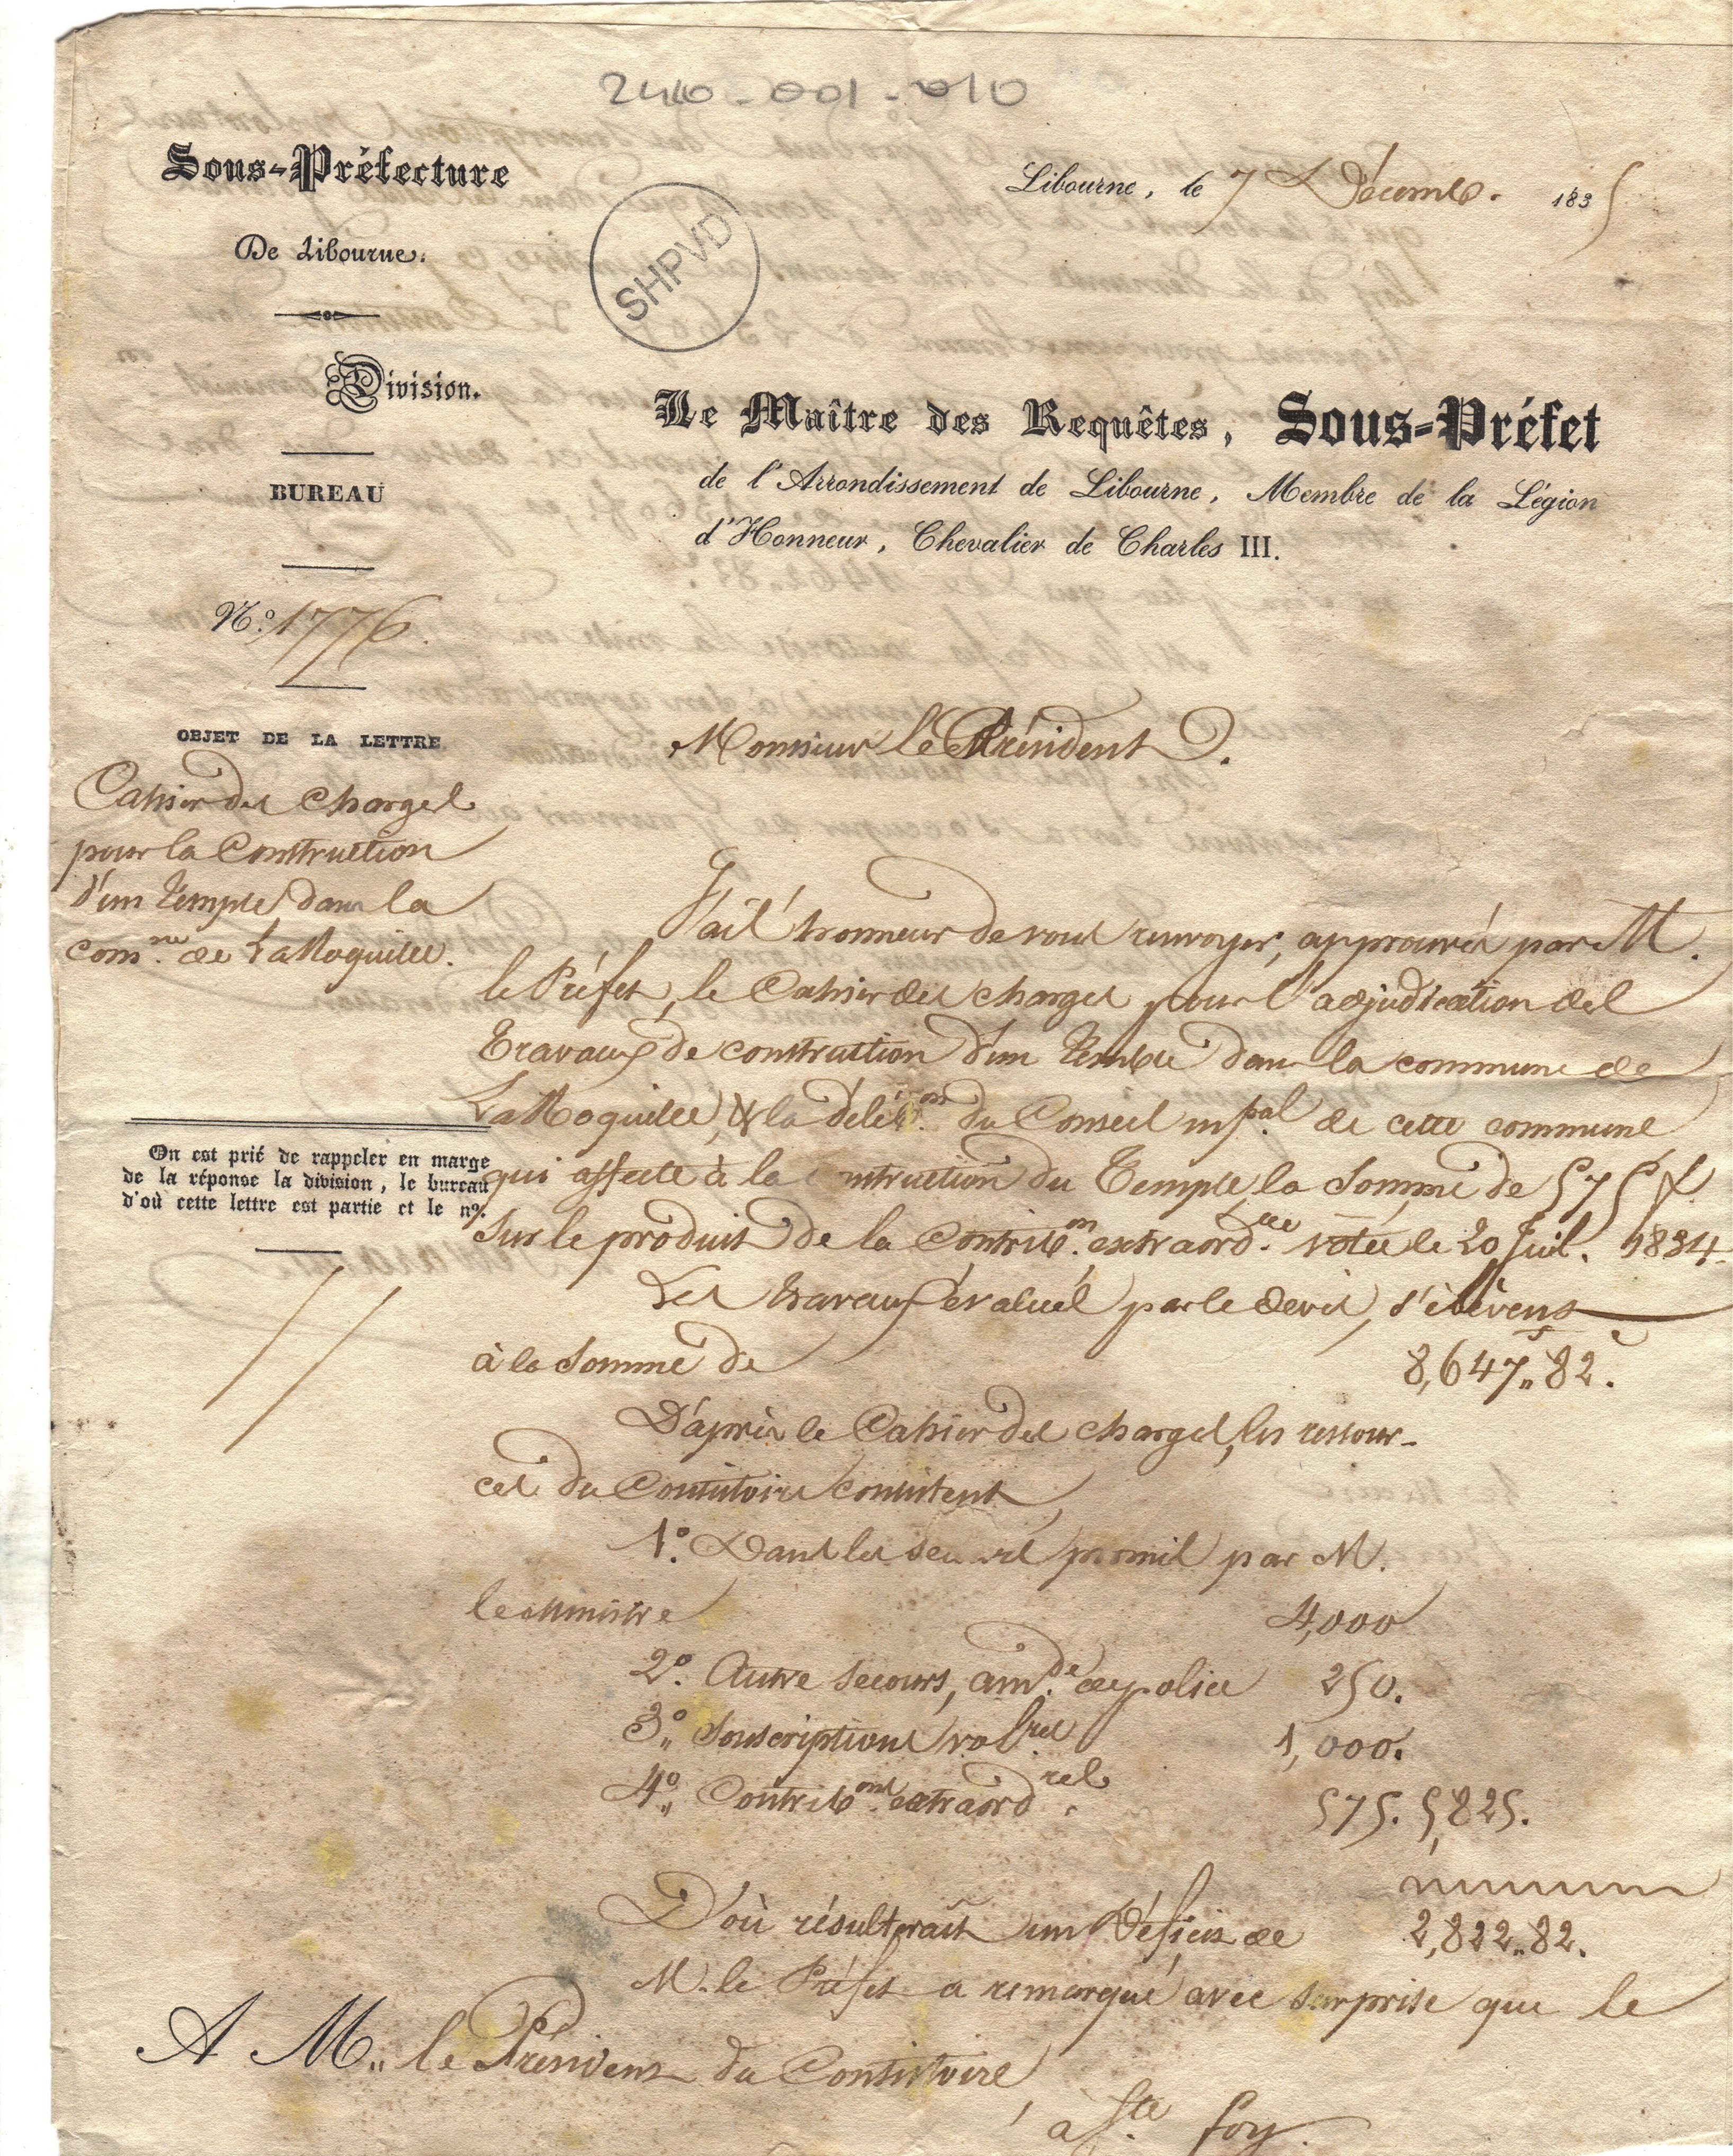 2410-001-010
Sous-Préfecture
De Libourne.
Division.
BUREAU
N.o 1776.
SHPVD
Libourne, le 7 Décemb. 1835
Le Maître des Requêtes, Sous-Préfet
de l'Arrondissement de Libourne, Membre de la Légion
d'Honneur, Chevalier de Charles III.
OBJET DE LA LETTRE
Cahier des charges
pour la Construction
d'un temple dans la
com.ne de LaRoquille.
On est prié de rappeler en marge
de la réponse la division, le bureau
d'où cette lettre est partie et le nº.
Monsieur le Président.
J'ai l'honneur de vous renvoyer, approuvés par M.
le Préfet, le Cahier des charges pour l'adjudication des
travaux de construction d'un temple dans la commune de
LaRoquille, & la délib.on du Conseil mpal. de cette commune
qui affecte à la construction du Temple, la somme de 575 f.
sur le produit de la Contrib.on extraord.re votée le 20 Juil. 1834.
Les travaux évalués par le devis, s'élèvent
à la somme de 8,647,,82.c
D'après le Cahier des charges, les ressour-
ces du Consistoire consistent,
1.o Dans les secours promis par M.
le Ministre 4,000
2.o Autre secours, am.de de police 250.
3.o Souscriptions vol.res 1,000.
4.o Contrib.ons extraord.res 575. 5,825.
D'où résulterait un déficit de 2,822,,82.
M. le Préfet a remarqué avec surprise que le
A M,, le Président du Consistoire,
à Ste foy.